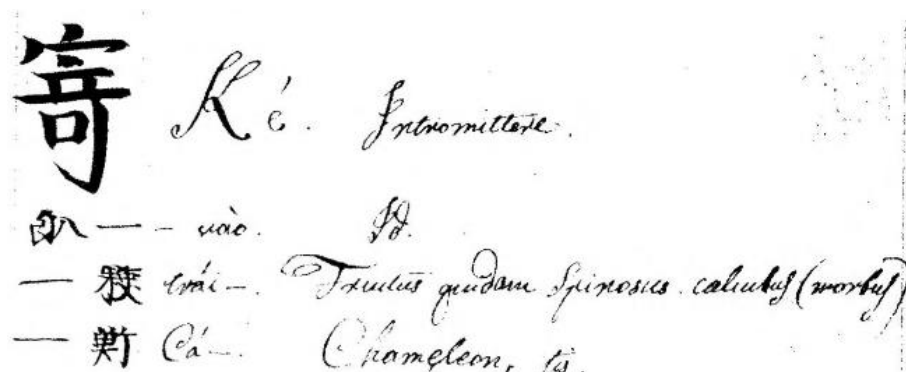 寄 Ké. Intromittere.
— - vào. Id.
— trái —. Fructus quidam Spinosus. calculus (morbus)
— Cá —. Chameleon, tis.